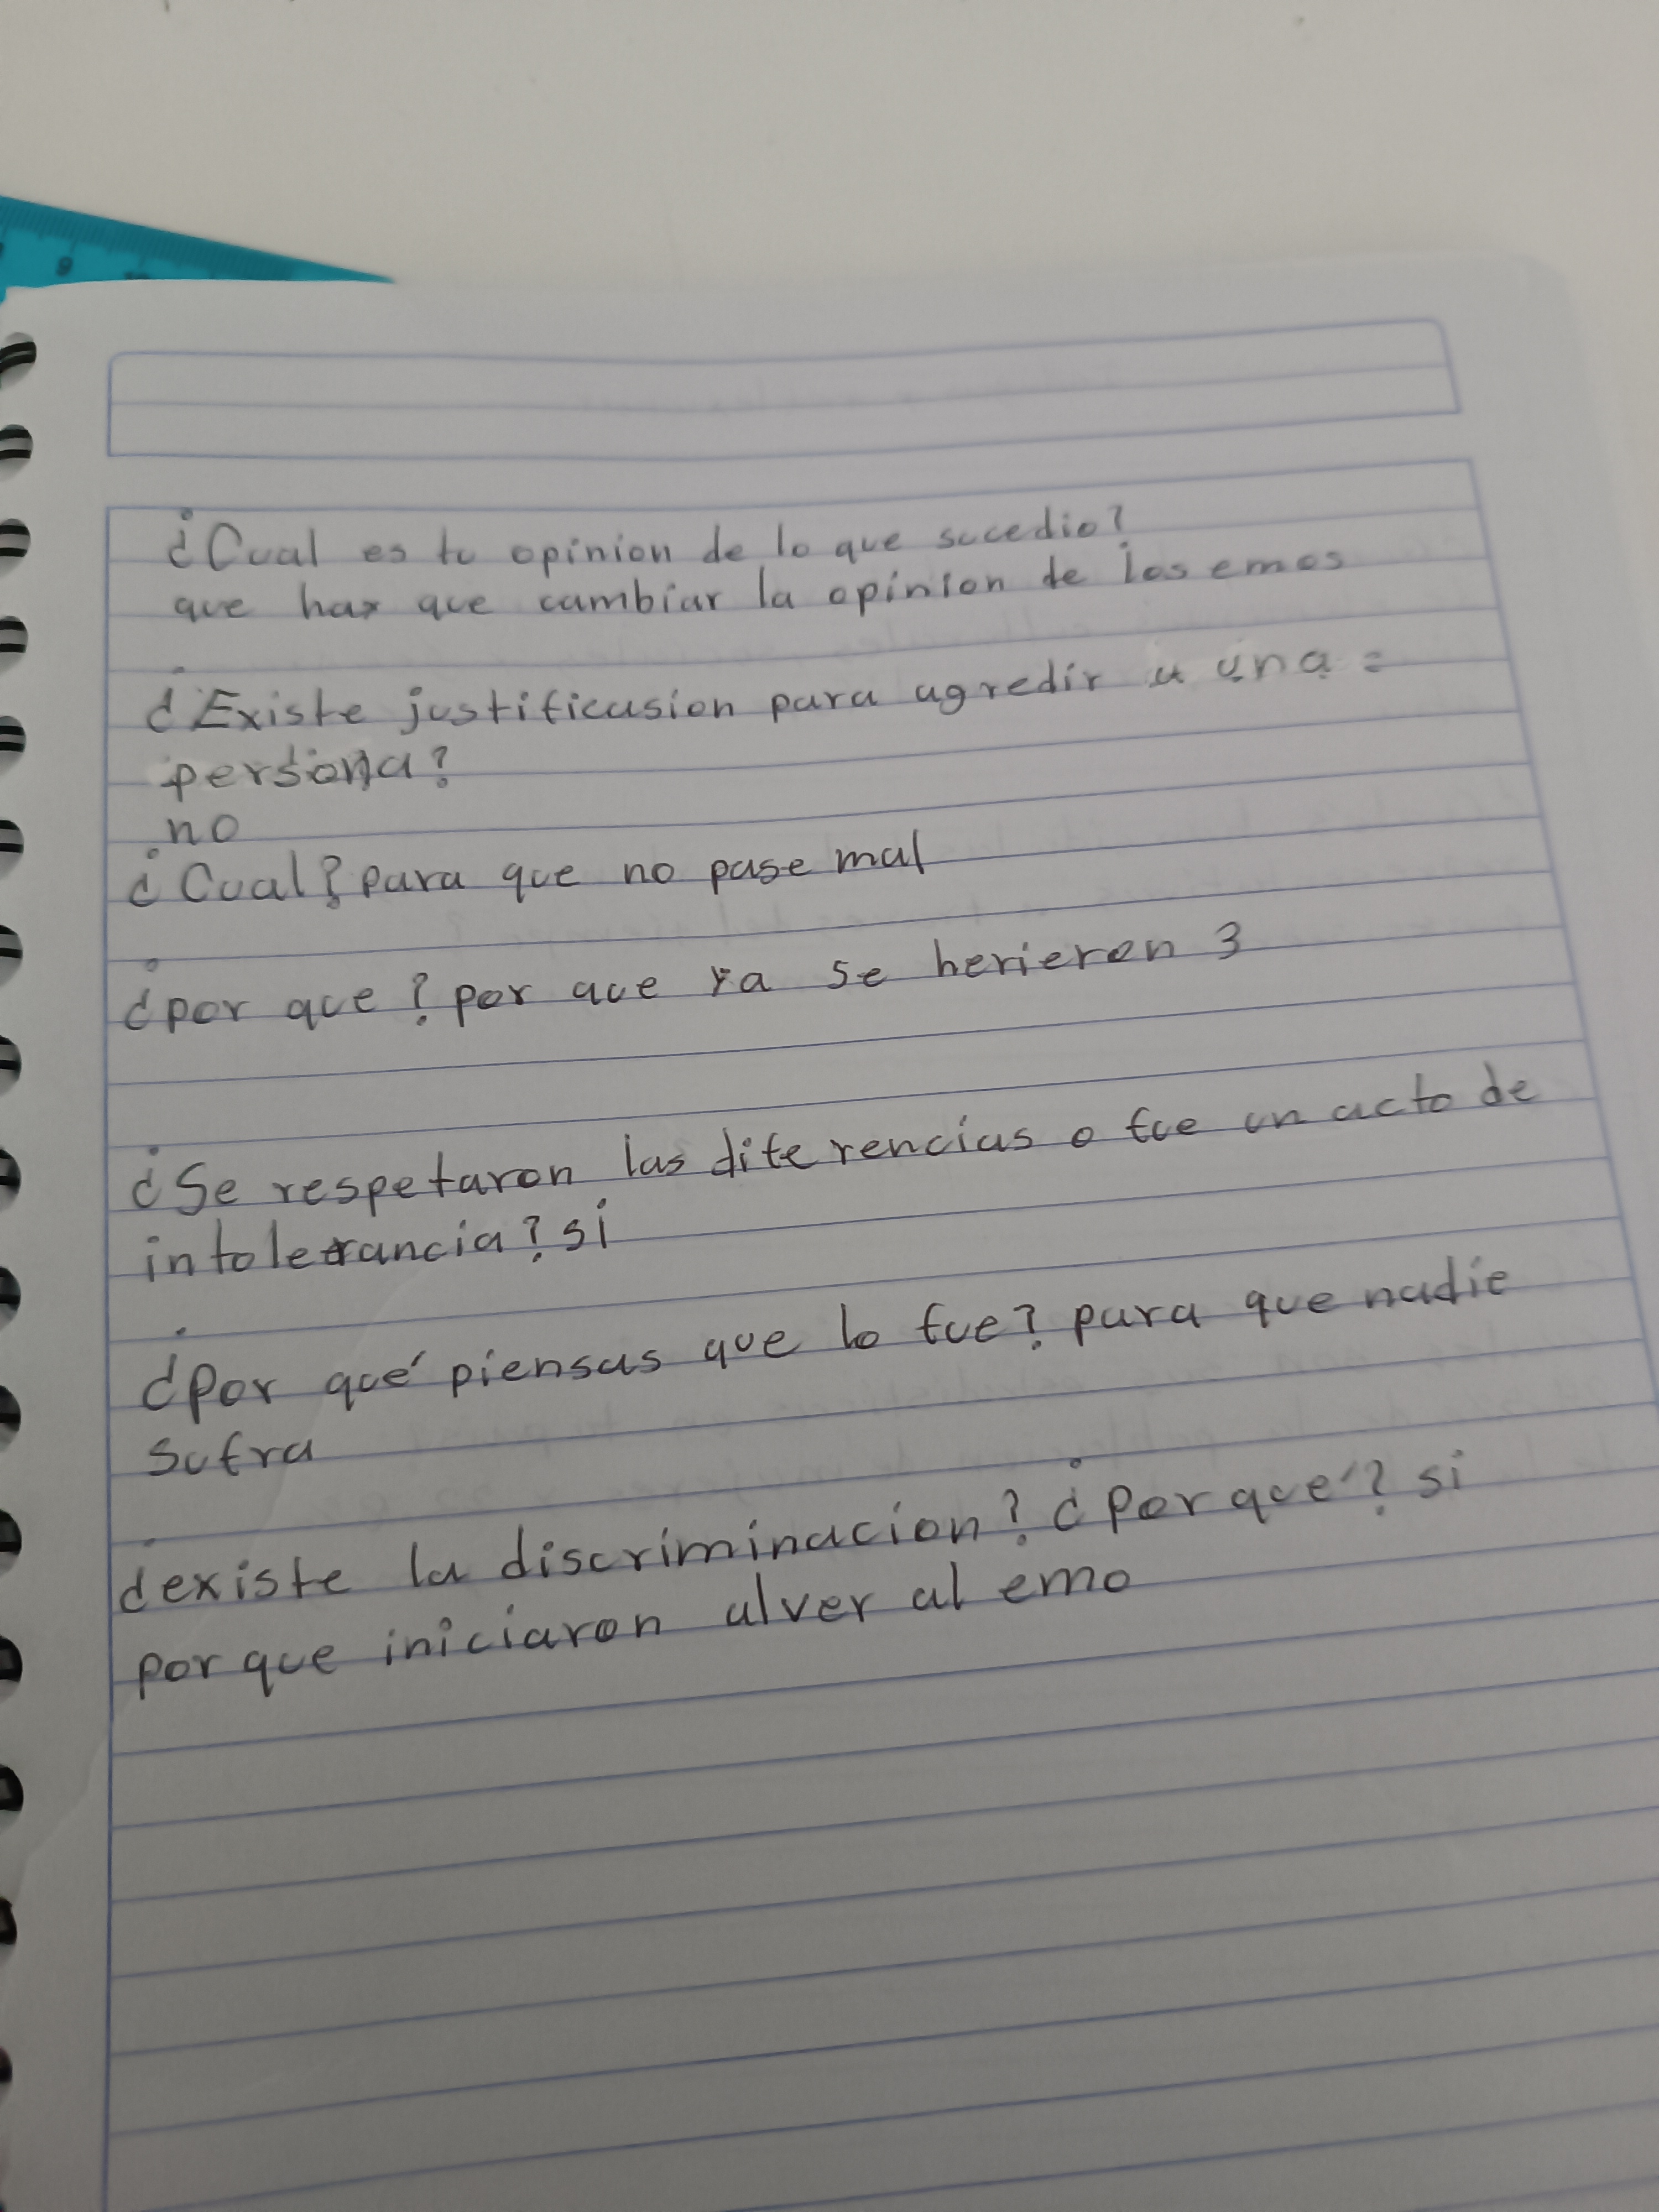 ¿Cual es tu opinion de lo que sucedio?
que hay que cambiar la opinion de los emos
¿Existe justificasion para agredir a una =
persona?
no
¿Cual? para que no pase mal
¿por que? por que ya se herieron 3
¿Se respetaron las diferencias o fue un acto de
intolerancia? si
¿Por qué piensas que lo fue? para que nadie
sufra
¿existe la discriminacion? ¿Por qué? si
por que iniciaron alver al emo